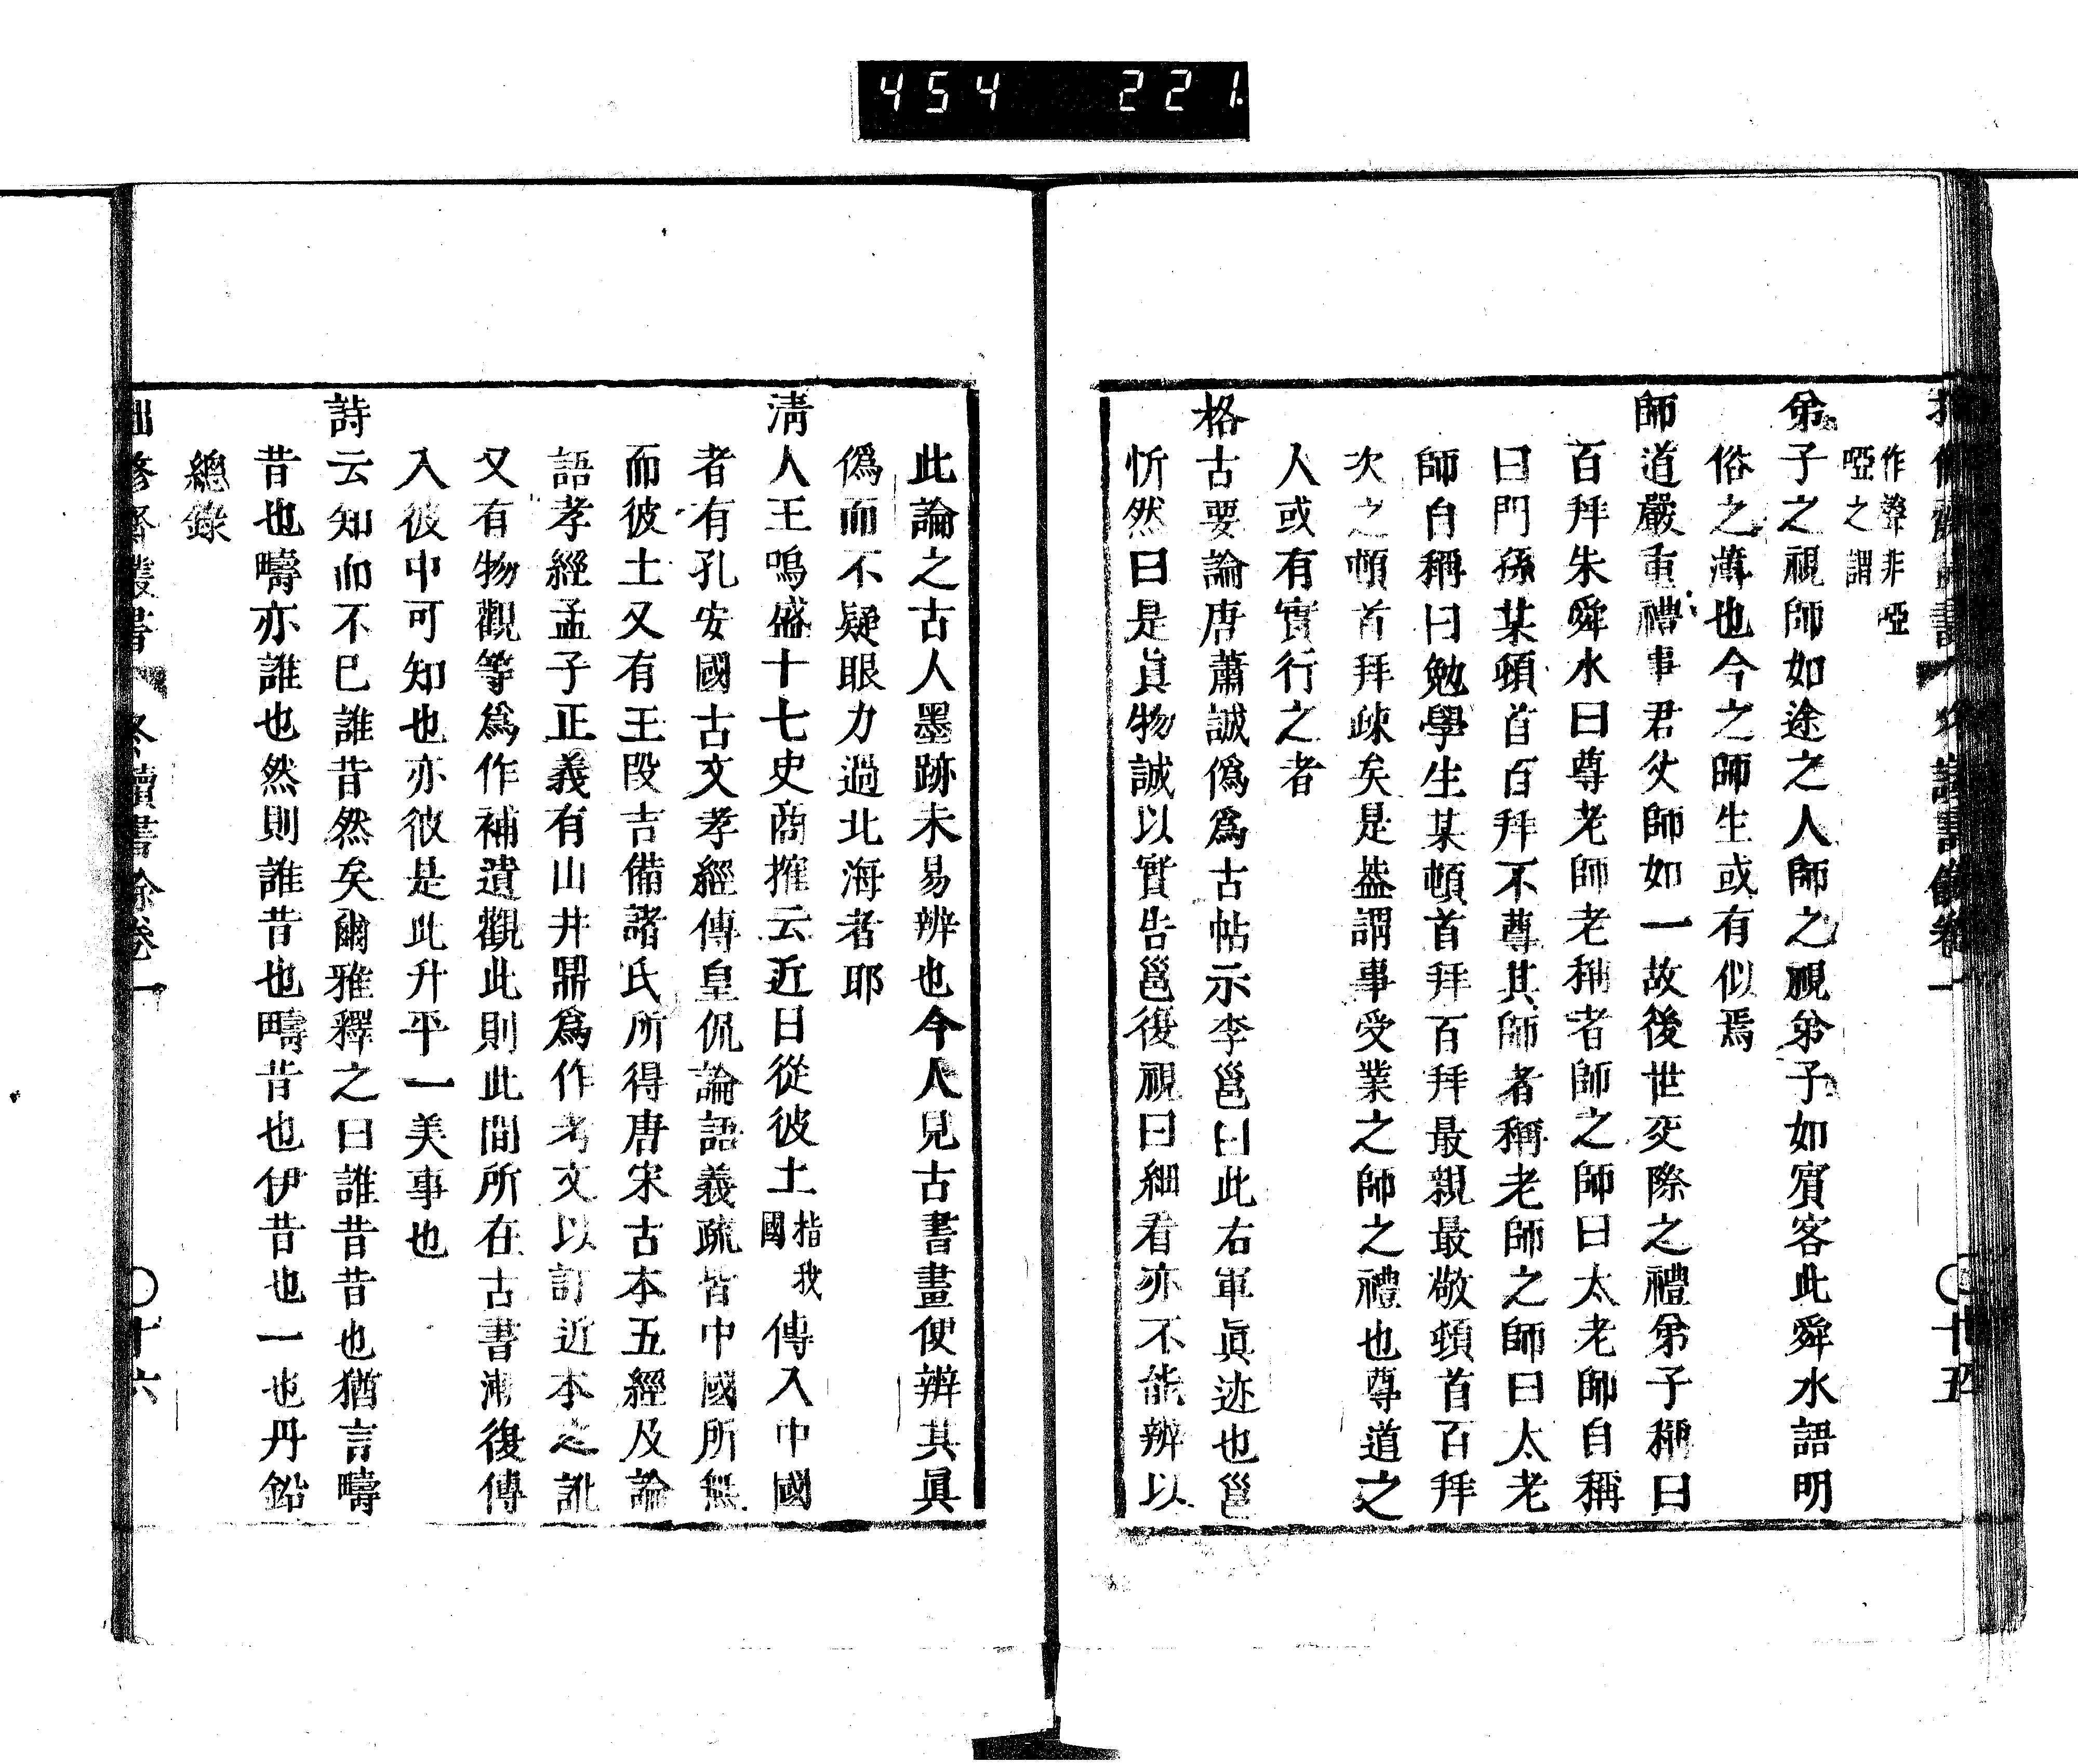 454 221.
作聲非啞
啞之謂
弟子之視師如途之人師之視弟子如賓客此舜水語明
俗之薄也今之師生或有似焉
師道嚴重禮事君父師如一故後世交際之禮弟子稱曰
百拜朱舜水曰尊老師老稱者師之師曰太老師自稱
曰門孫某頓首百拜不尊其師者稱老師之師曰太老
師自稱曰勉學生某頓首拜百拜最親最敬頓首百拜
次之頓首拜疎矣是蓋謂事受業之師之禮也尊道之
人或有實行之者
格古要論唐蕭誠僞爲古帖示李邕曰此右軍眞迹也邕
忻然曰是眞物誠以實告邕復視曰細看亦不能辨以
此論之古人墨跡未易辨也今人見古書畫便辨其眞
僞而不疑眼力過北海者耶
淸人王鳴盛十七史商搉云近日從彼土指我國傳入中國
者有孔安國古文孝經傳皇侃論語義疏皆中國所無
而彼土又有王段吉備諸氏所得唐宋古本五經及論
語孝經孟子正義有山井鼎爲作考文以訂近本之訛
又有物觀等爲作補遺觀此則此間所在古書沛復傳
入彼中可知也亦彼是此升平一美事也
詩云知而不已誰昔然矣爾雅釋之曰誰昔昔也猶言疇
昔也疇亦誰也然則誰昔也疇昔也伊昔也一也丹鉛
總錄
修齋叢書 冬讀書餘卷一 〇十六